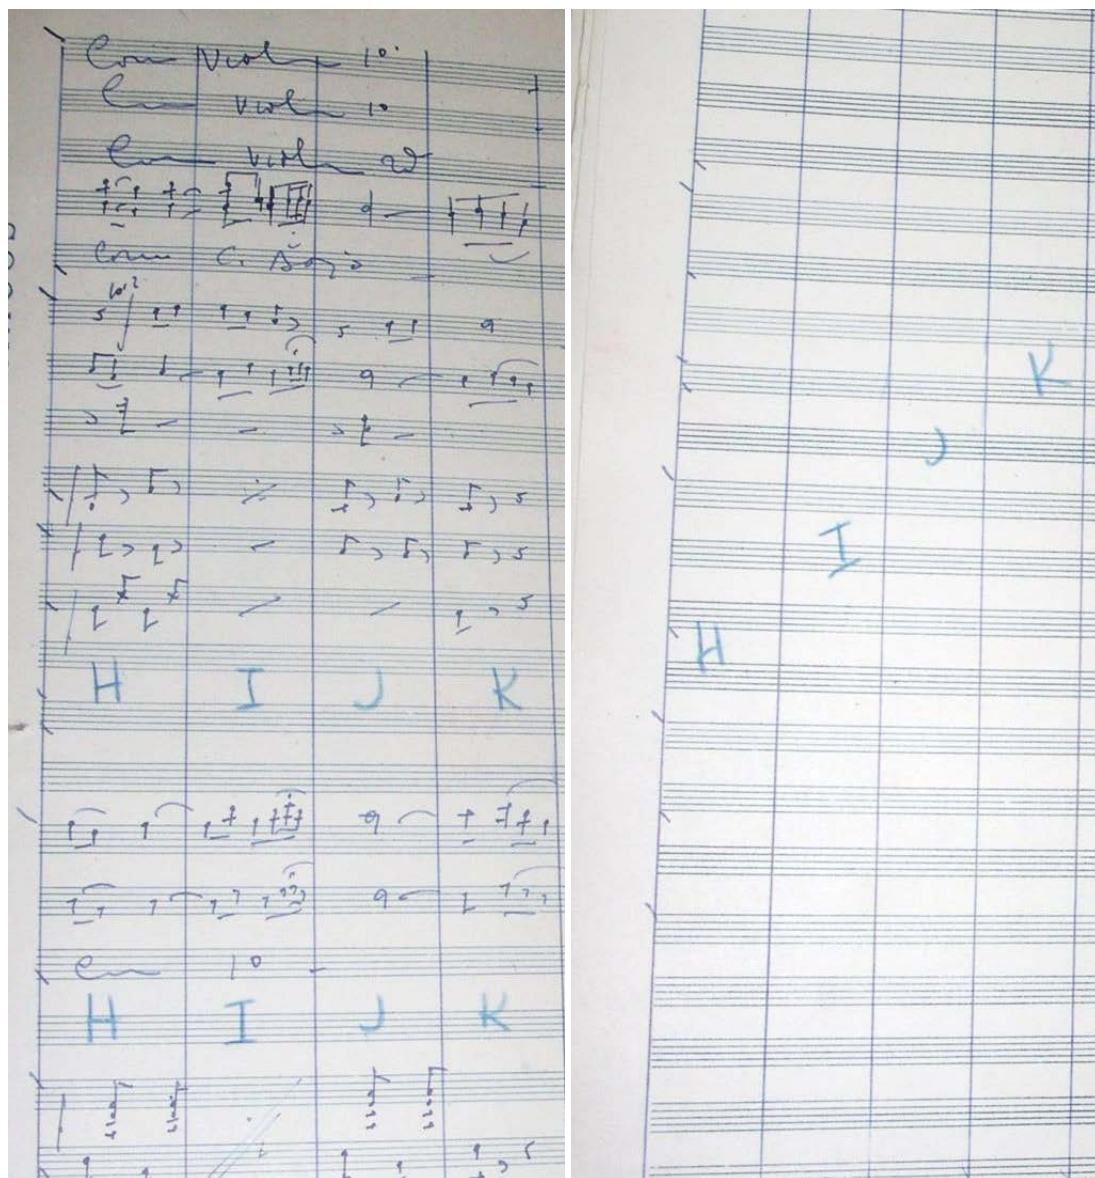 Com Violin 1º
Com Violin 1º
Com Violin 2º
Com C.
H I J K
Com 1º
H I J K
K
J
I
H